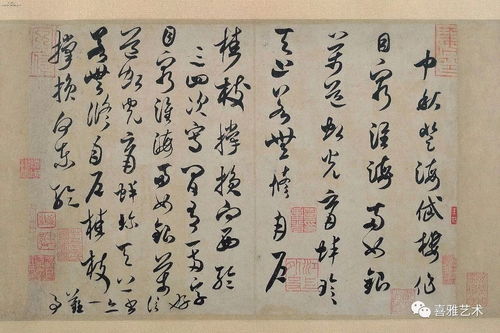 中秋登海岱樓作
目窮淮海兩如銀
萬道虹光育蚌珍
天上若無修月戶
桂枝撐損向西輪
三四次寫間有一兩字
好信書亦一難事
目窮淮海兩如銀萬
道虹光育蚌珍天上
若無修月戶桂枝
撐損向東輪
喜雅艺术